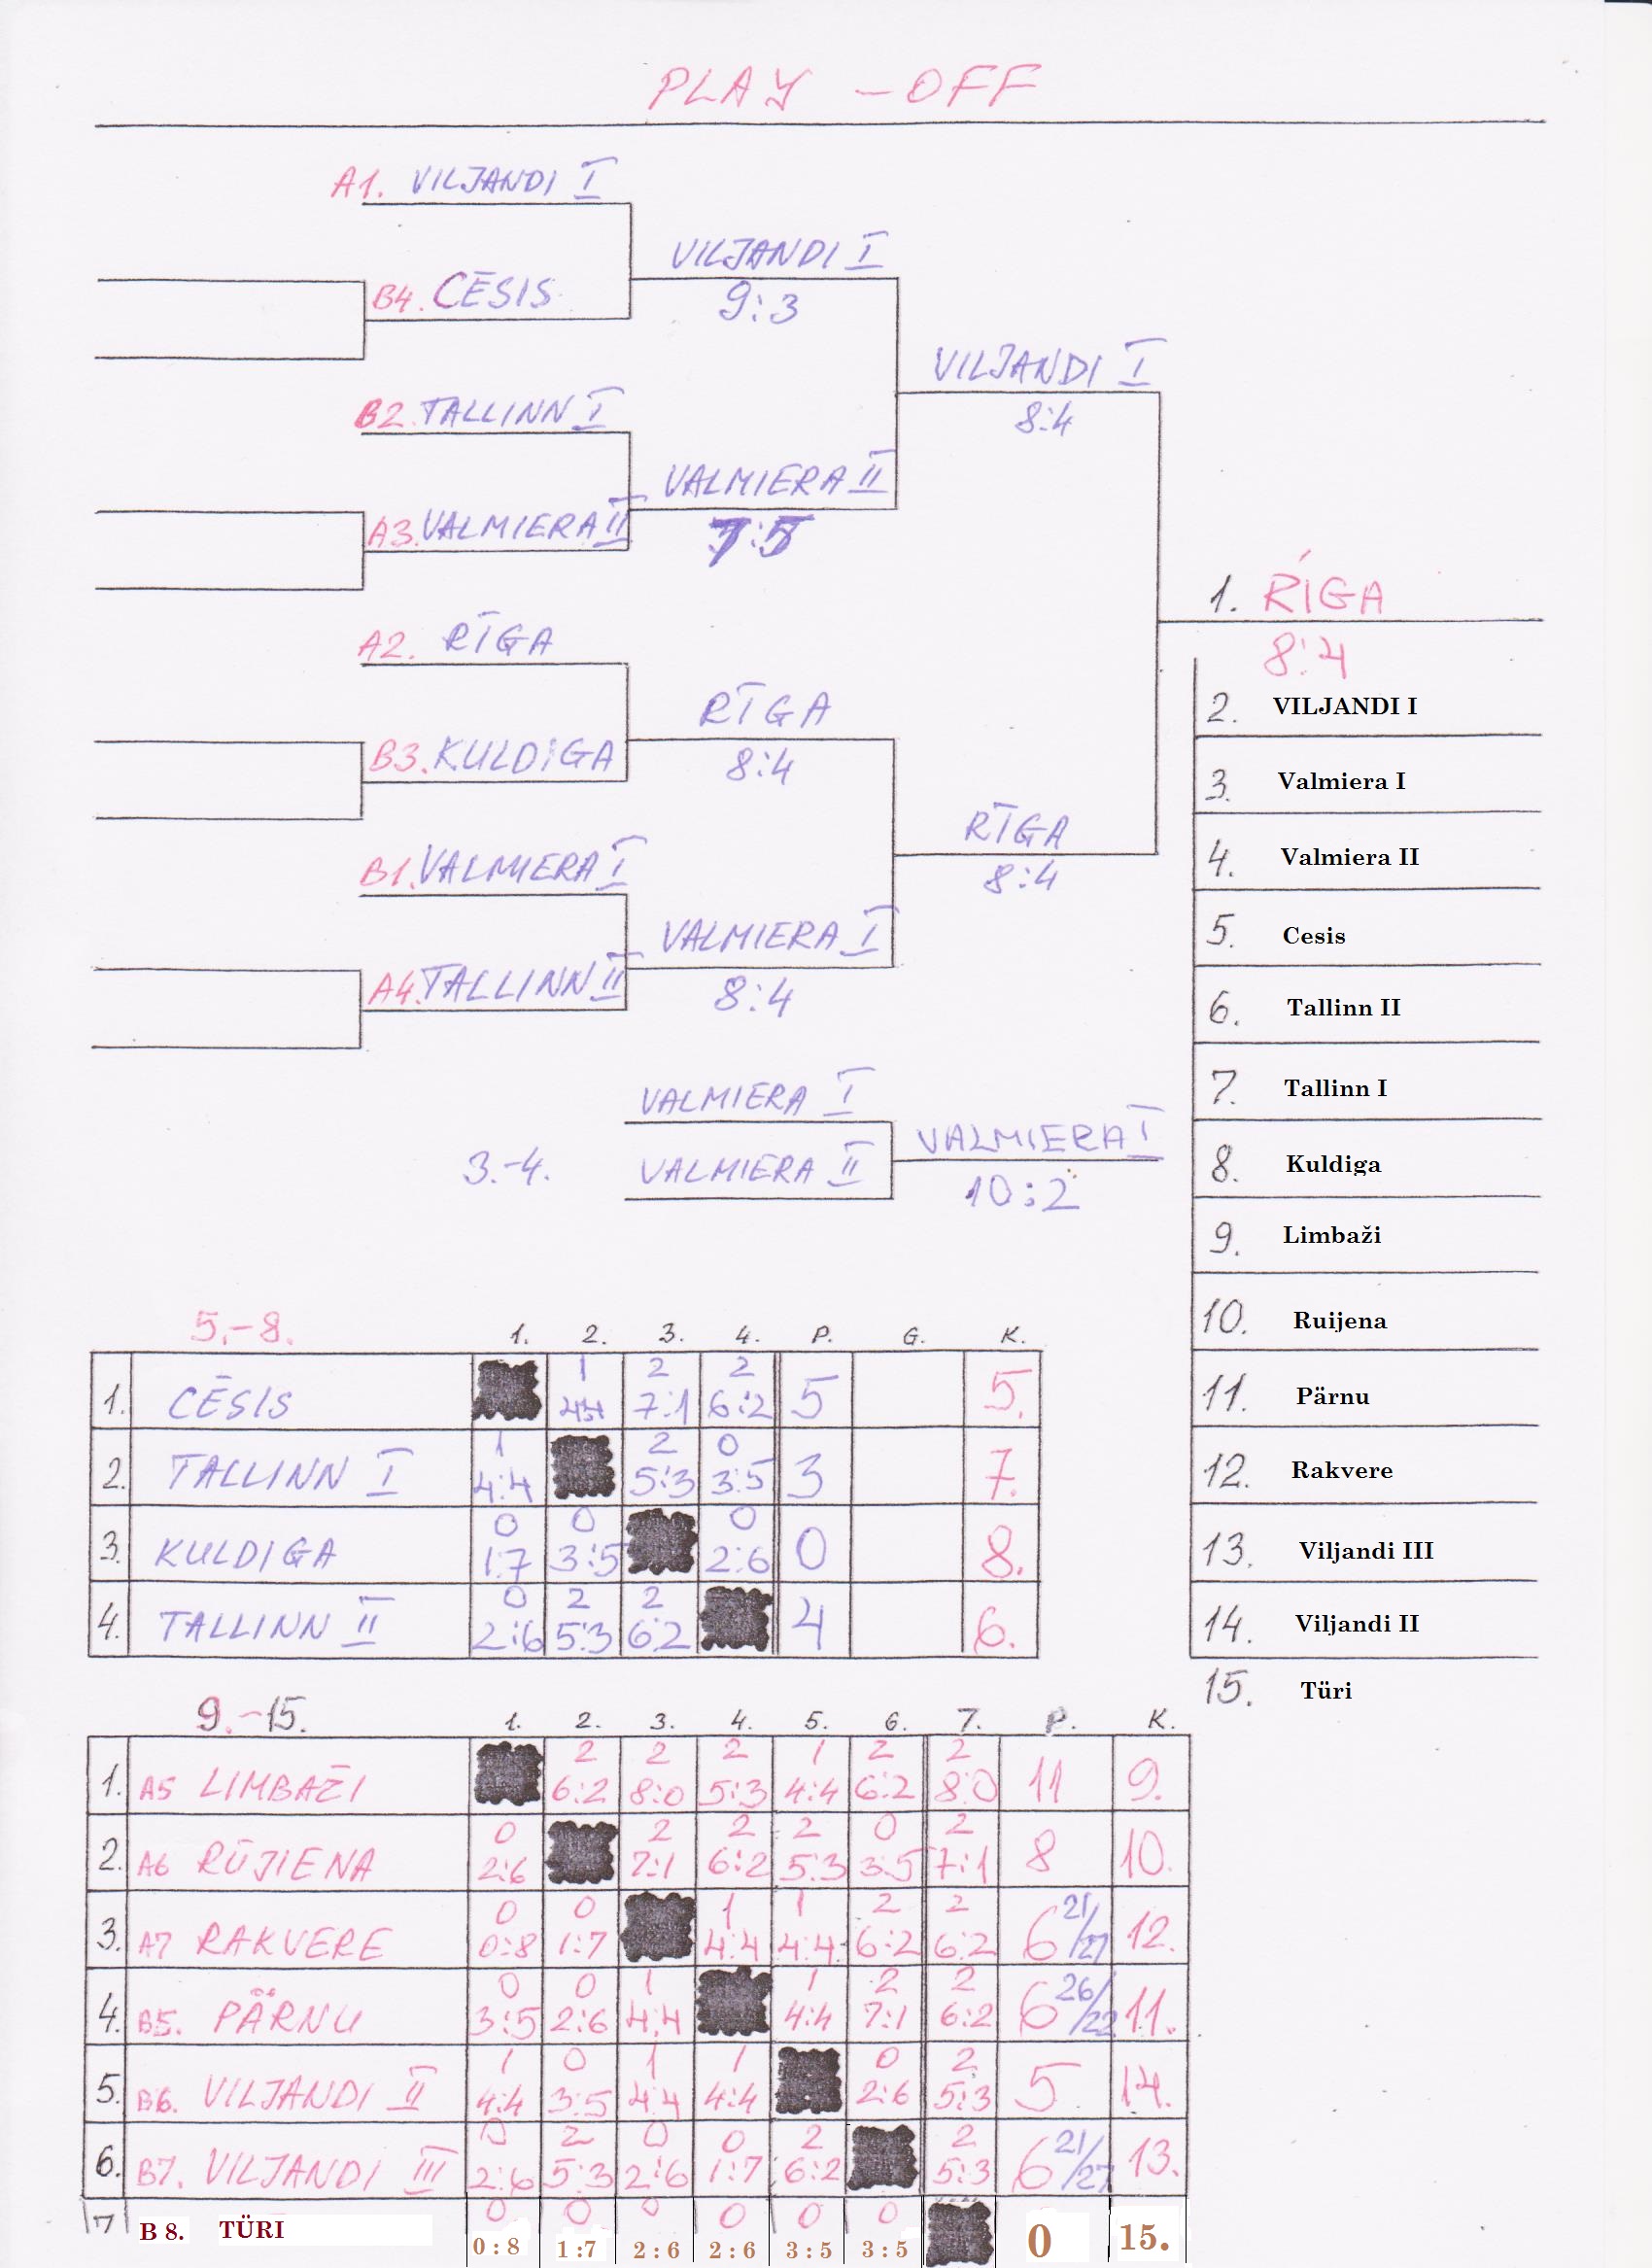 PLAY - OFF
A1. VILJANDI I
VILJANDI I
B4. CĒSIS
9:3
VILJANDI I
B2. TALLINN I
8:4
VALMIERA II
A3. VALMIERA II
7:5
1. RĪGA
A2. RĪGA
8:4
RĪGA
2. VILJANDI I
B3. KULDIGA
8:4
3. Valmiera I
RĪGA
B1. VALMIERA I
8:4
4. Valmiera II
VALMIERA I
5. Cesis
A4. TALLINN II
8:4
6. Tallinn II
VALMIERA I
7. Tallinn I
VALMIERA I
3.-4.
VALMIERA II
10:2
8. Kuldiga
9. Limbaži
10. Ruijena
11. Pärnu
12. Rakvere
13. Viljandi III
14. Viljandi II
15. Türi
5.-8. 1. 2. 3. 4. P. G. K.
1 2 2
1. CĒSIS 4:4 7:1 6:2 5 5.
1 2 0
2. TALLINN I 4:4 5:3 3:5 3 7.
0 0 0
3. KULDIGA 1:7 3:5 2:6 0 8.
0 2 2
4. TALLINN II 2:6 5:3 6:2 4 6.
9.-15. 1. 2. 3. 4. 5. 6. 7. P. K.
2 2 2 1 2 2
1. A5 LIMBAŽI 6:2 8:0 5:3 4:4 6:2 8:0 11 9.
0 2 2 2 0 2
2. A6 RŪJIENA 2:6 7:1 6:2 5:3 3:5 7:1 8 10.
0 0 1 1 2 2
3. A7 RAKVERE 0:8 1:7 4:4 4:4 6:2 6:2 6 21/27 12.
0 0 1 1 2 2
4. B5. PÄRNU 3:5 2:6 4:4 4:4 7:1 6:2 6 26/22 11.
1 0 1 1 0 2
5. B6. VILJANDI II 4:4 3:5 4:4 4:4 2:6 5:3 5 14.
0 2 0 0 2 2
6. B7. VILJANDI III 2:6 5:3 2:6 1:7 6:2 5:3 6 21/27 13.
0 0 0 0 0 0
7 B 8. TÜRI 0 : 8 1 :7 2 : 6 2 : 6 3 : 5 3 : 5 0 15.